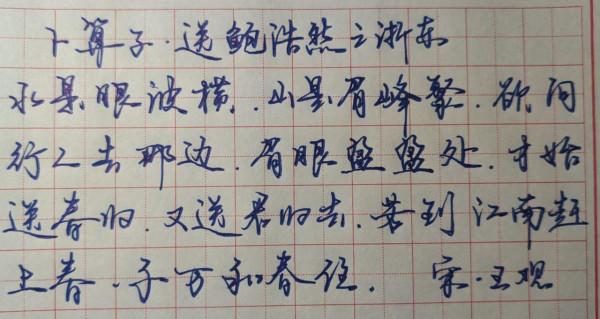 卜算子·送鲍浩然之浙东
水是眼波横.山是眉峰聚.欲问
行人去那边.眉眼盈盈处.才始
送春归.又送君归去.若到江南赶
上春.千万和春住. 宋·王观